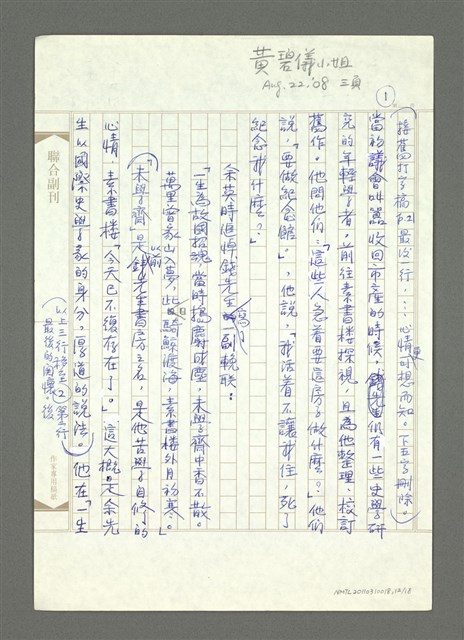 黃碧儀小姐
Aug. 22.'08 三頁
1
(接舊打字稿P.2最後一行：：：心情更可想而知。下五字刪除。)
當初議會叫囂收回市產的時候，錢先生仍有一些史學研
究的年輕學者，前往素書樓探視，且為他整理、校訂
舊作。他問他們：「這些人急着要這房子做什麼？」他們
說，「要做紀念館。」，他說，「我活着不讓我住，死了
紀念我什麼？」
余英時追悼錢先生寫一副輓聯：
「一生為故國招魂，當時搗麝成塵，未學齋中香不散。
萬里曾家山入夢，此日騎鯨渡海，素書樓外月初寒。」
「未學齋」是錢先生以前書房之名，是他苦學自修的
心情，素書樓「今天已不復存在了。」這大概是余先
生以國際史學家的身分，厚道的說法。他在「一生
(以上三行接去P.2第一行
最後的自嘆」後
聯合副刊
作家專用稿紙
NMTL20110310018,12/18